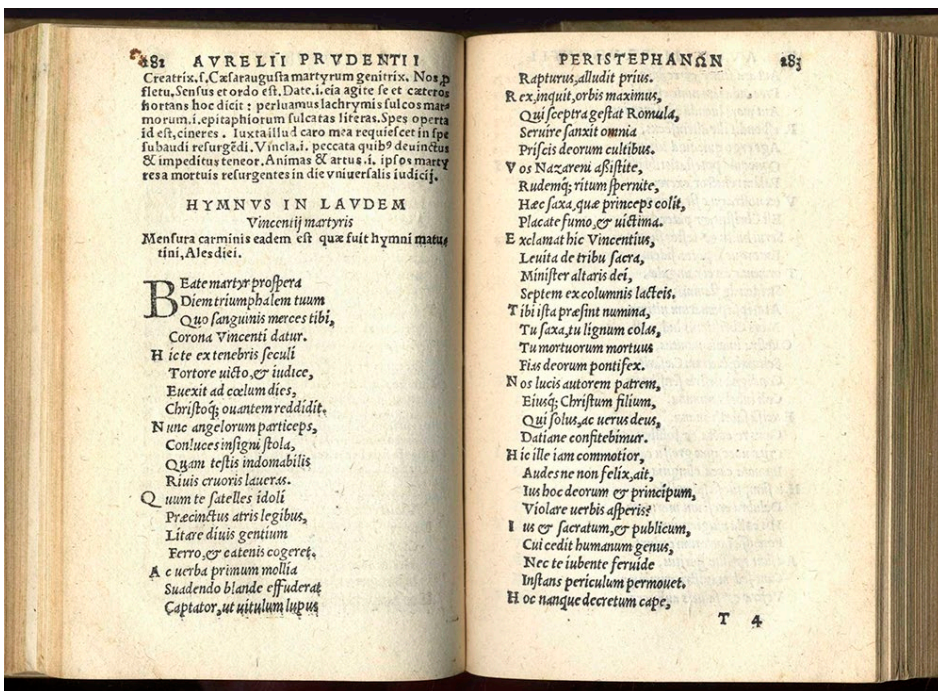 282 AVRELII PRVDENTII
Creatrix.s.Cæsaraugusta martyrum genitrix. Nos,p
fletu.Sensus et ordo est.Date.i.eia agite se et cæteros
hortans hoc dicit : perluamus lachrymis sulcos mar
morum.i.epitaphiorum sulcatas literas.Spes operta
id est,cineres . Iuxta illud caro mea requiescet in spe
subaudi resurgēdi.Vincla.i. peccata quibꝰ deuinctus
& impeditus teneor. Animas & artus.i. ipsos marty
res a mortuis resurgentes in die vniuersalis iudicij.
HYMNVS IN LAVDEM
Vincentij martyris
Mensura carminis eadem est quæ fuit hymni matu
tini,Ales diei.
BEate martyr prospera
Diem triumphalem tuum
Quo sanguinis merces tibi,
Corona Vincenti datur.
Hic te ex tenebris seculi
Tortore uicto,& iudice,
Euexit ad cœlum dies,
Christoq; ouantem reddidit.
Nunc angelorum particeps,
Conluces insigni stola,
Quam testis indomabilis
Riuis cruoris laueras.
Quum te satelles idoli
Præcinctus atris legibus,
Litare diuis gentium
Ferro,& catenis cogeret.
Ac uerba primum mollia
Suadendo blande effuderat
Captator,ut uitulum lupus
PERISTEPHANΩN 283
Rapturus,alludit prius.
Rex,inquit,orbis maximus,
Qui sceptra gestat Romula,
Seruire sanxit omnia
Priscis deorum cultibus.
Vos Nazareni assistite,
Rudemq; ritum spernite,
Hæc saxa,quæ princeps colit,
Placate fumo,& uictima.
Exclamat hic Vincentius,
Leuita de tribu sacra,
Minister altaris dei,
Septem ex columnis lacteis.
Tibi ista præsint numina,
Tu saxa,tu lignum colas,
Tu mortuorum mortuus
Fias deorum pontifex.
Nos lucis autorem patrem,
Eiusq; Christum filium,
Qui solus,ac uerus deus,
Datiane confitebimur.
Hic ille iam commotior,
Audes ne non felix,ait,
Ius hoc deorum & principum,
Violare uerbis asperis?
Ius & sacratum,& publicum,
Cui cedit humanum genus,
Nec te iubente feruide
Instans periculum permouet.
Hoc nanque decretum cape,
T 4